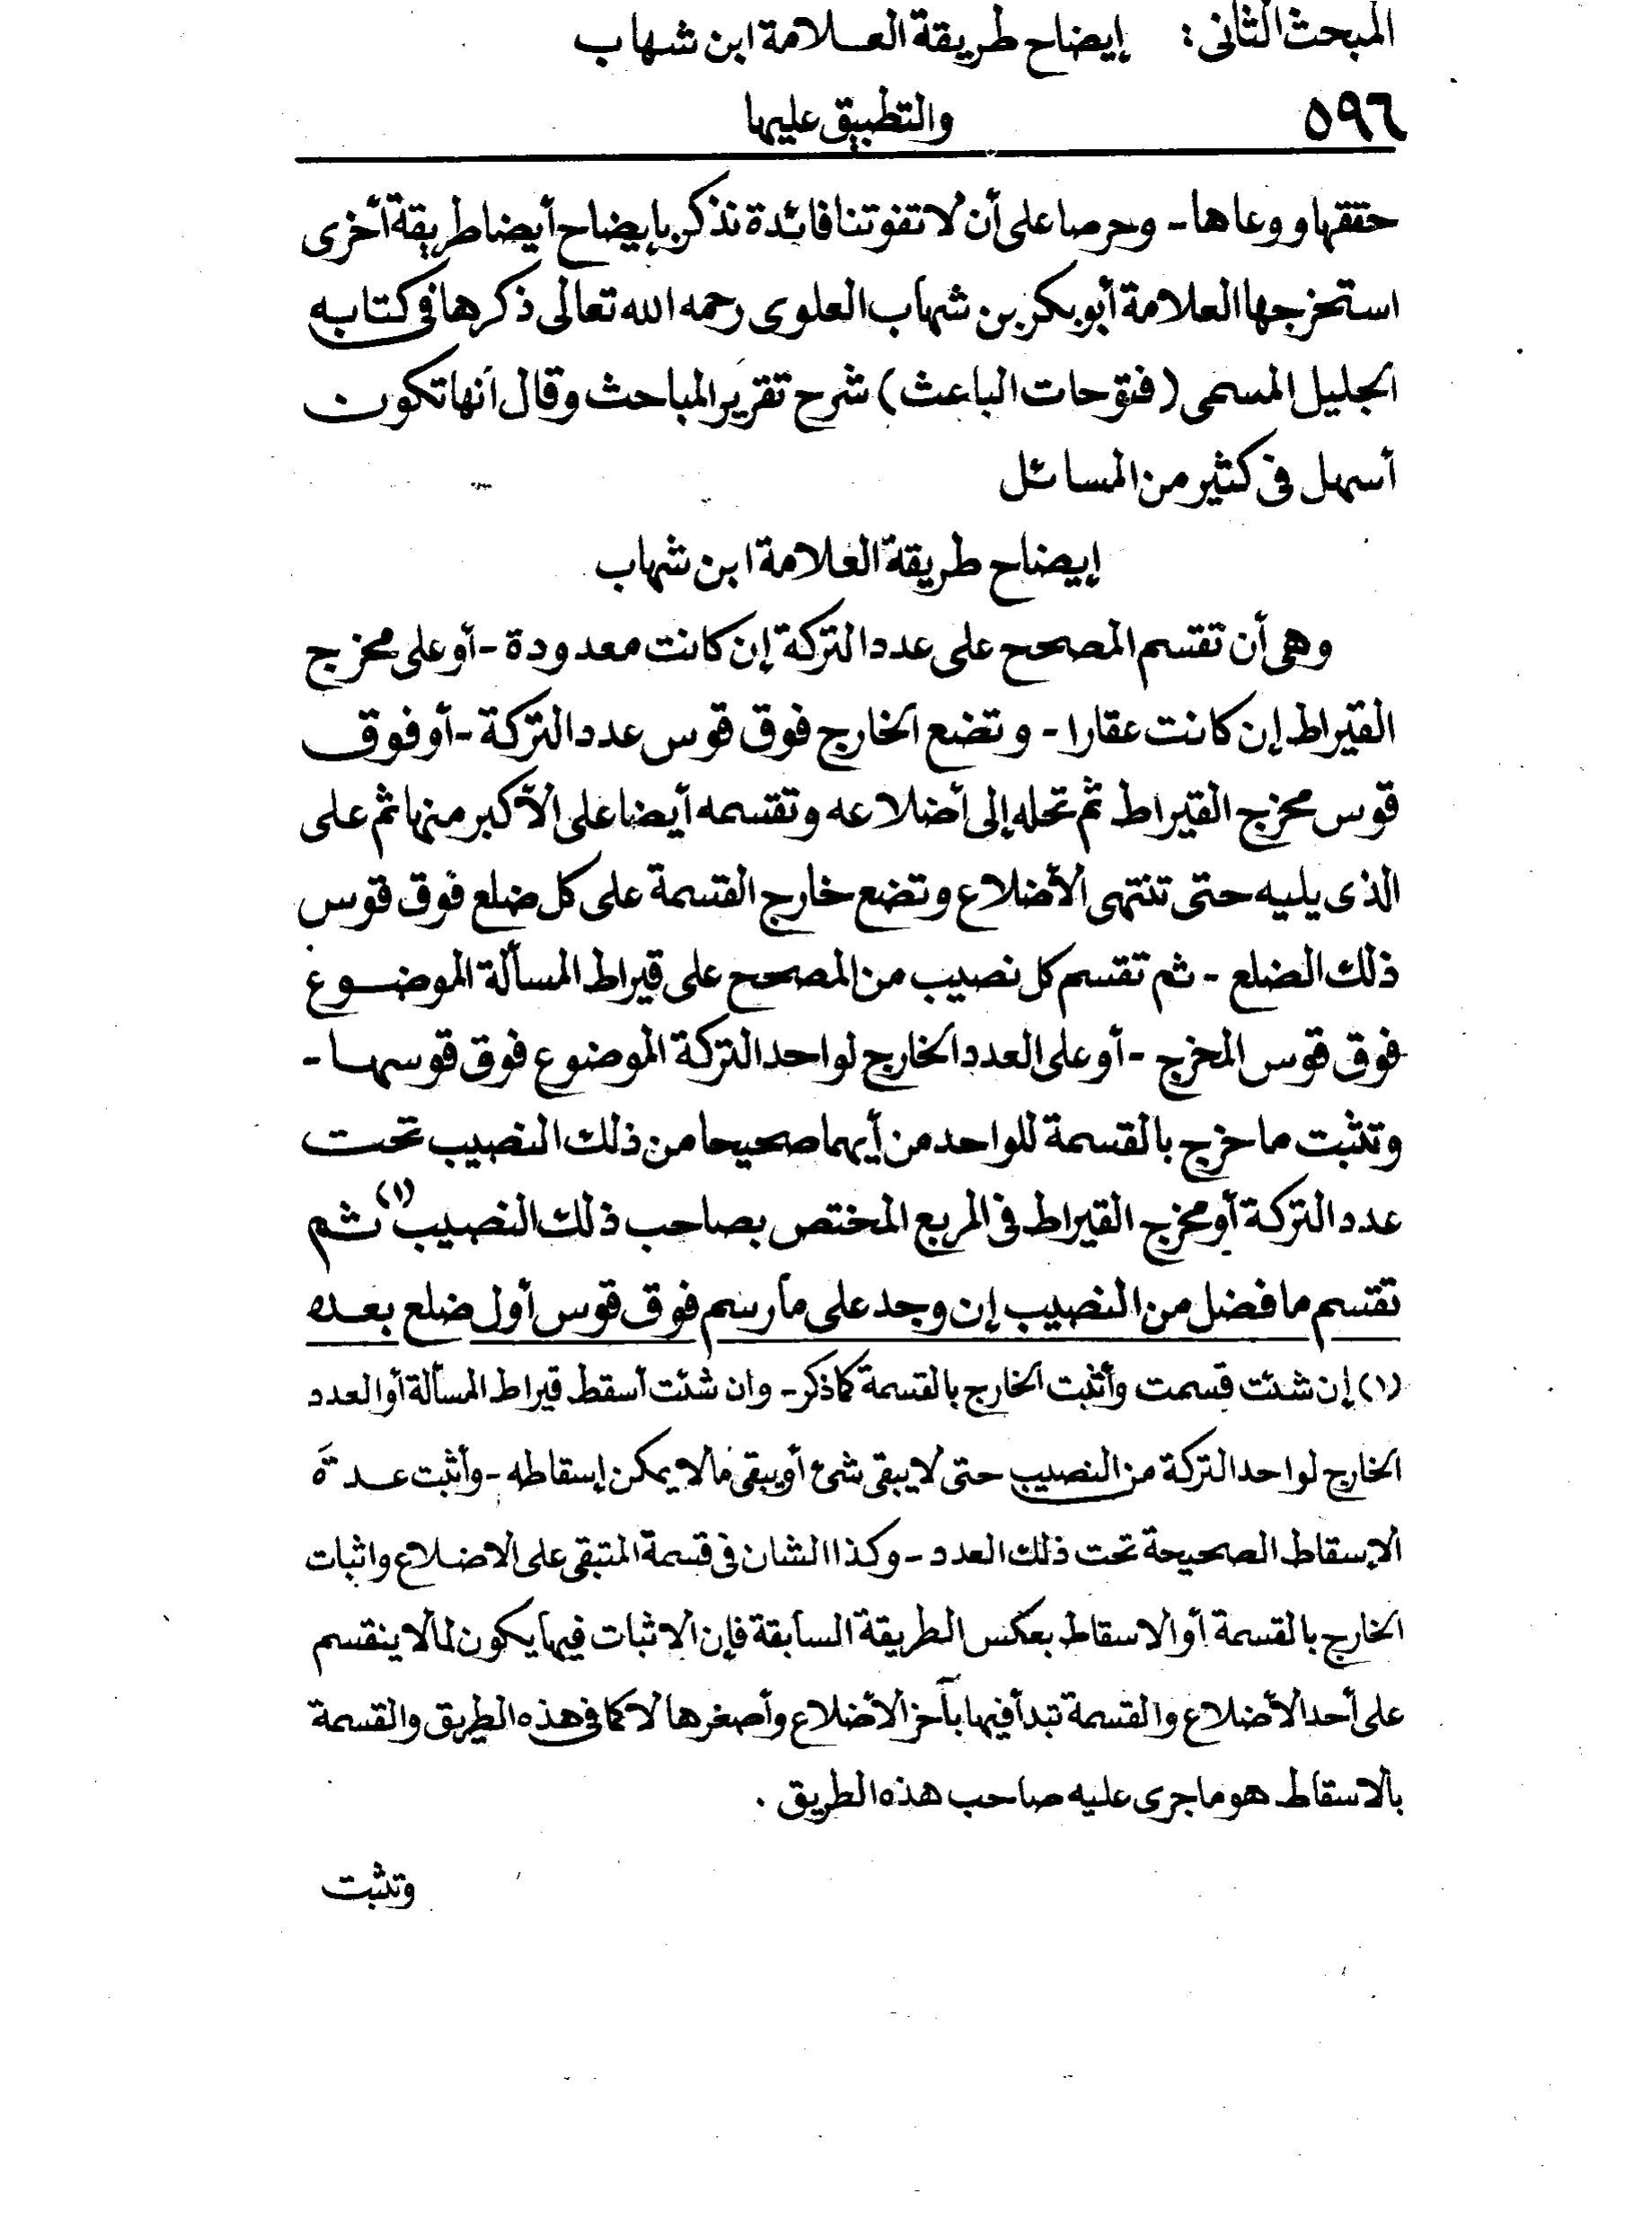 المبحث الثانى : إيضاح طريقة العلامة ابن شهاب
٥٩٦ والتطبيق عليها
حققها ووعاها - وحرصا على أن لا تفوتنا فائدة نذكر بإيضاح أيضا طريقة أخرى
استخرجها العلامة أبوبكر بن شهاب العلوى رحمه الله تعالى ذكرها فى كتابه
الجليل المسمى (فتوحات الباعث) شرح تقرير المباحث وقال أنها تكون
أسهل فى كثير من المسائل
إيضاح طريقة العلامة ابن شهاب
وهى أن تقسم المصحح على عدد التركة إن كانت معدودة - أو على مخرج
القيراط إن كانت عقارا - وتضع الخارج فوق قوس عدد التركة - أو فوق
قوس مخرج القيراط ثم تحله إلى أضلاعه وتقسمه أيضا على الأكبر منها ثم على
الذى يليه حتى تنتهى الأضلاع وتضع خارج القسمة على كل ضلع فوق قوس
ذلك الضلع - ثم تقسم كل نصيب من المصحح على قيراط المسألة الموضوع
فوق قوس المخرج - أو على العدد الخارج لواحد التركة الموضوع فوق قوسها -
وتثبت ما خرج بالقسمة للواحد من أيهما صحيحا من ذلك النصيب تحت
عدد التركة أو مخرج القيراط فى المربع المختص بصاحب ذلك النصيب (١) ثم
تقسم ما فضل من النصيب إن وجد على ما رسم فوق قوس أول ضلع بعده
(١) إن شئت قسمت وأثبت الخارج بالقسمة كما ذكر - وان شئت أسقط قيراط المسألة أو العدد
الخارج لواحد التركة من النصيب حتى لا يبقى شئ أو يبقى ما لا يمكن إسقاطه - وأثبت عدة
الإسقاط الصحيحة تحت ذلك العدد - وكذا الشان فى قسمة المتبقى على الاضلاع واثبات
الخارج بالقسمة أو الاسقاط بعكس الطريقة السابقة فإن الاثبات فيها يكون لما لا ينقسم
على أحد الأضلاع والقسمة تبدأ فيها بآخر الأضلاع وأصغرها لا كما فى هذه الطريق والقسمة
بالاسقاط هو ما جرى عليه صاحب هذه الطريق .
وتثبت